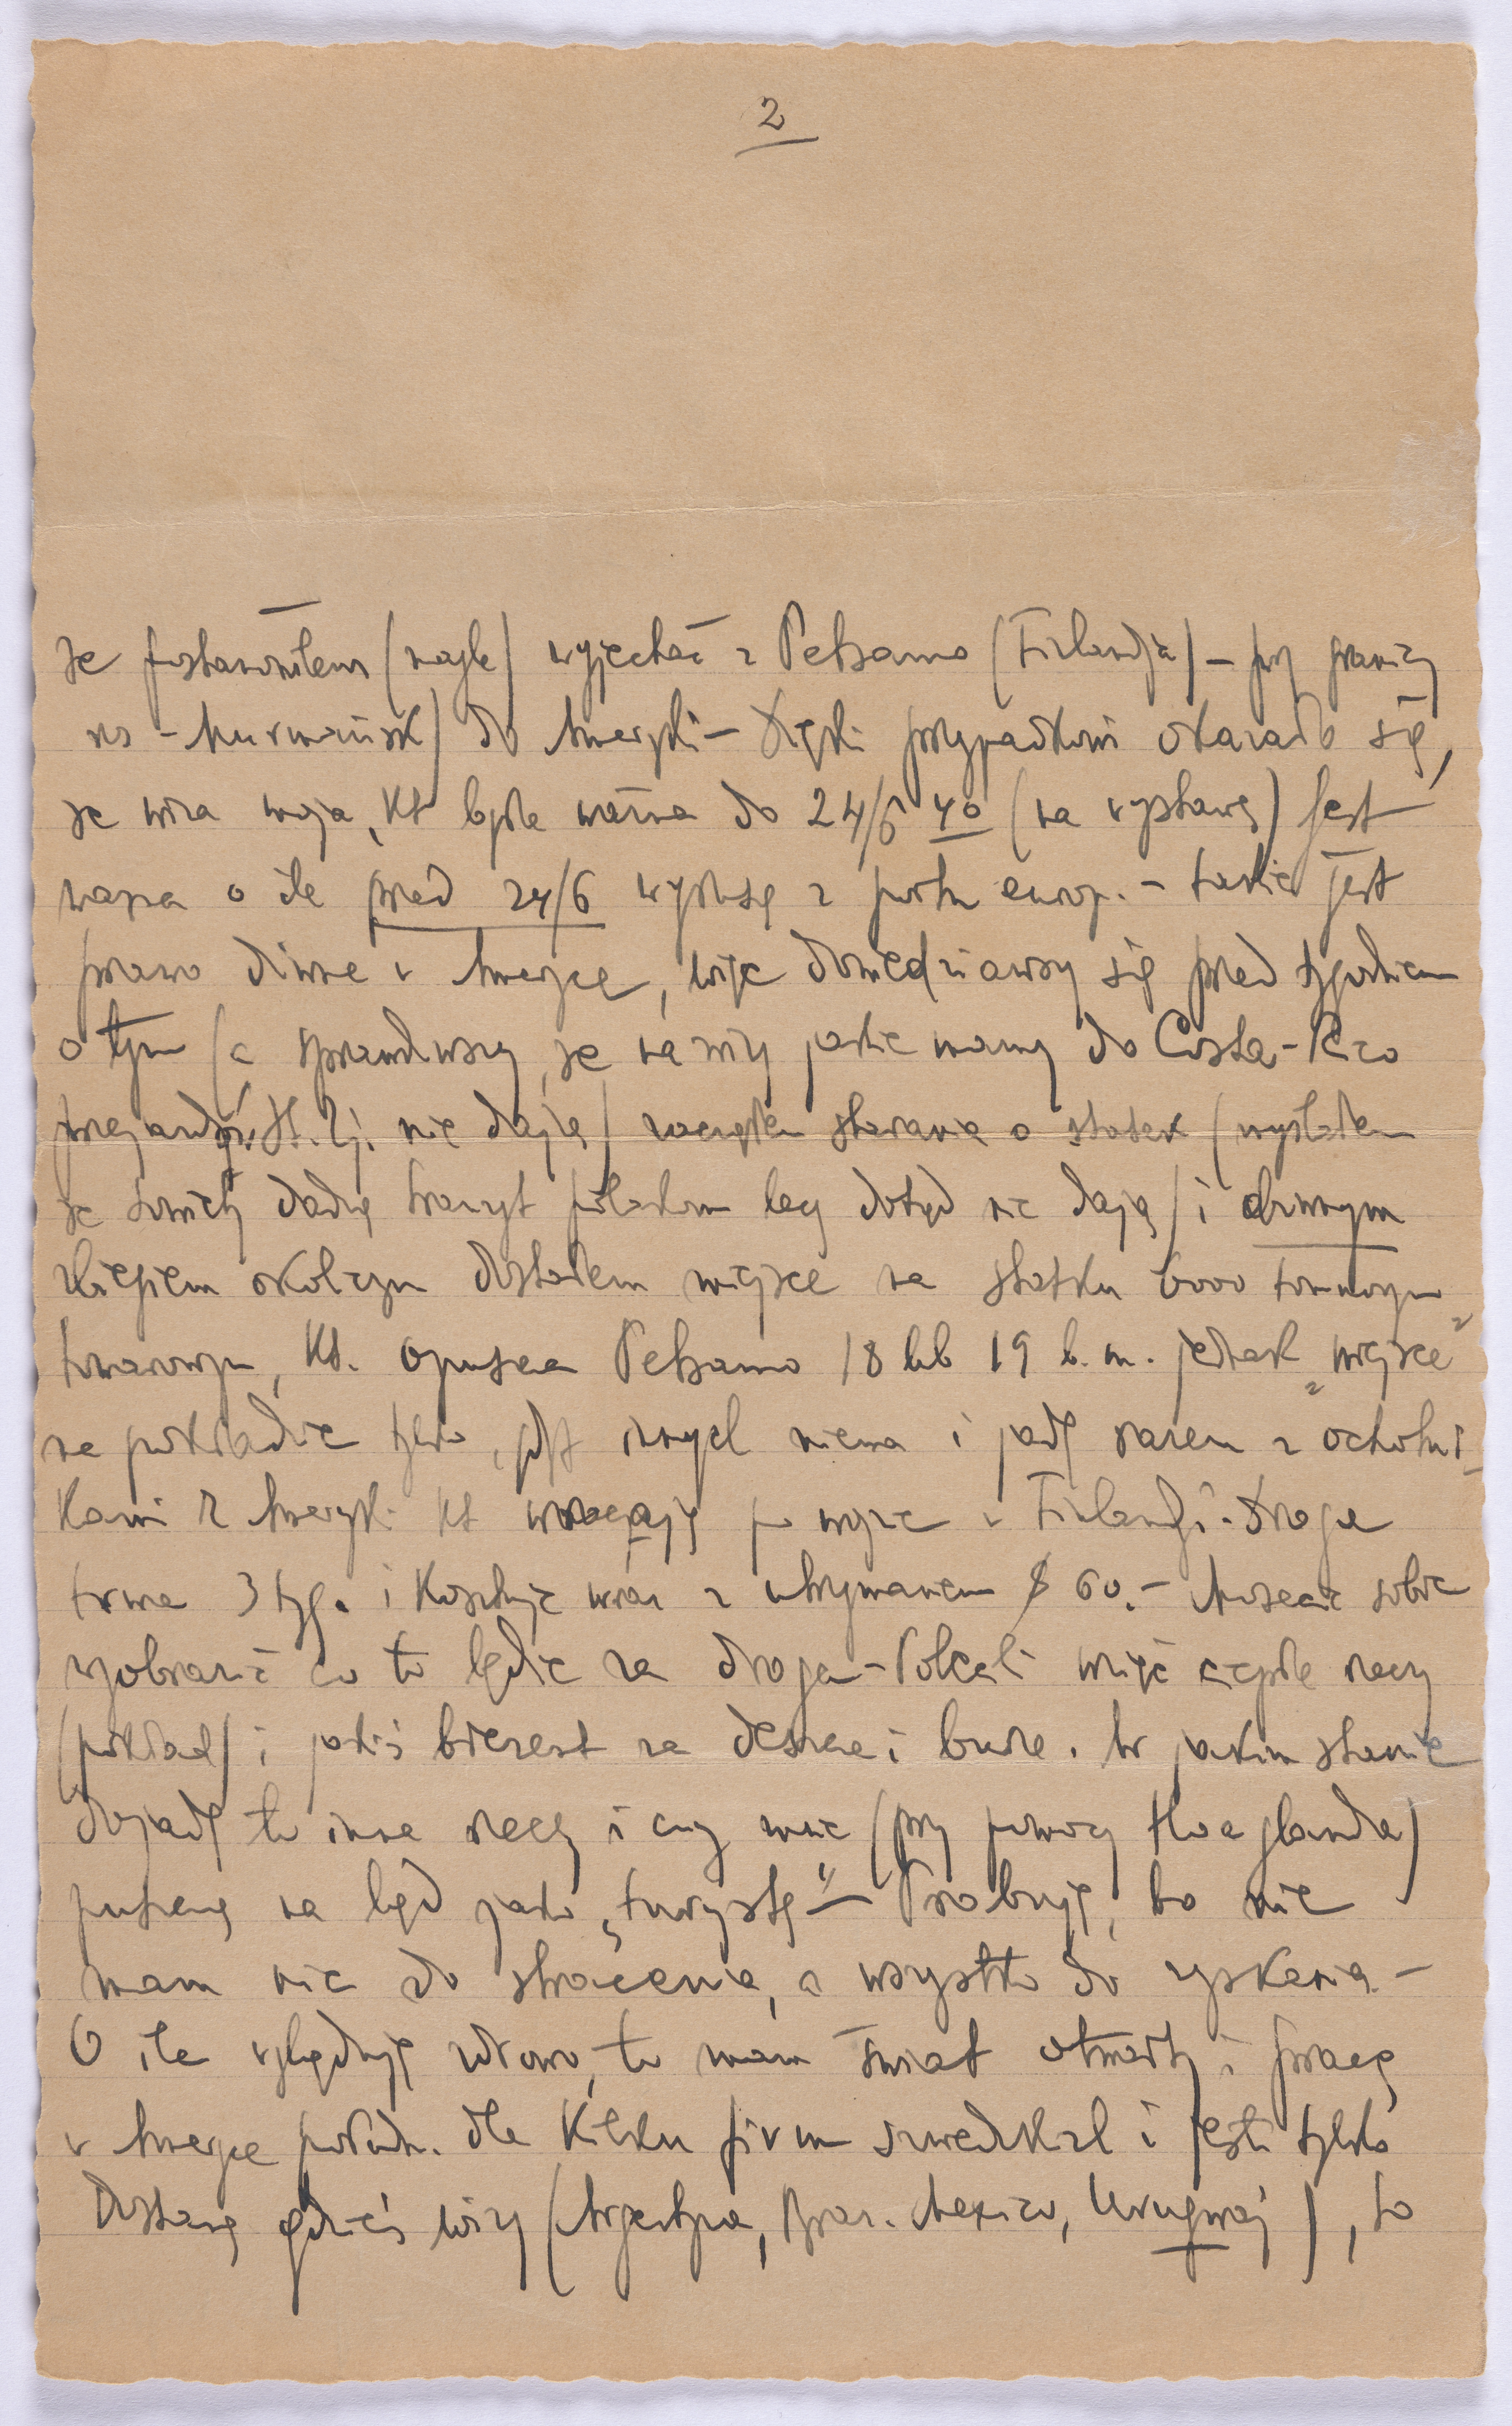 2
że postanowiłem (nagle) wyjechać z Petsamo (Finlandja) – przy granicy
ros – Murmańsk) do Ameryki – Dzięki przypadkowi okazało się,
że wiza moja, kt była ważna do 24/6 40 (na wystawę) jest
ważna o ile przed 24/6 wyruszę z portu europ. – takie jest
prawo dziwne w Ameryce, więc dowiedziawszy się przed tygodniem
o tym (a sprawdziwszy, że na wizy jakie mamy do Costa-Rico
przejazdu St. Zj. nie dają) zacząłem starania o statek (myślałem
że sowiety dadzą tranzyt polakom lecz dotąd nie dają) i dziwnym
zbiegiem okoliczn dostałem miejsce na statku 6000 tonnowym
towarowym, kt. opuszcza Petsamo 18 lub 19 b.m. jednak „miejsce”
na pokładzie tylko, gdyż innych niema i jadę razem z ochotni-
kami z Ameryki kt wracają po wojnie w Finlandji. Droga
trwa 3 tyg. i kosztuje wraz z utrzymaniem $ 60.– Możecie sobie
wyobrazić co to będzie za droga – Polecili wziąć ciepłe rzeczy
(pokład) i jakiś brezent na deszcze i burze. W jakim stanie
dojadę to inna rzecz i czy mnie (przy pomocy Hoaglanda)
puszczą na ląd jako „turystę” – Probuję, bo nie
mam nic do stracenia, a wszystko do zyskania –
O ile wyląduję zdrowo, to mam świat otwarty i pracę
w Ameryce połudn. dla kilku firm szwedzkich i jeśli tylko
dostanę gdzieś wizy (Argentyna, Braz. Mexico, Urugwaj), to